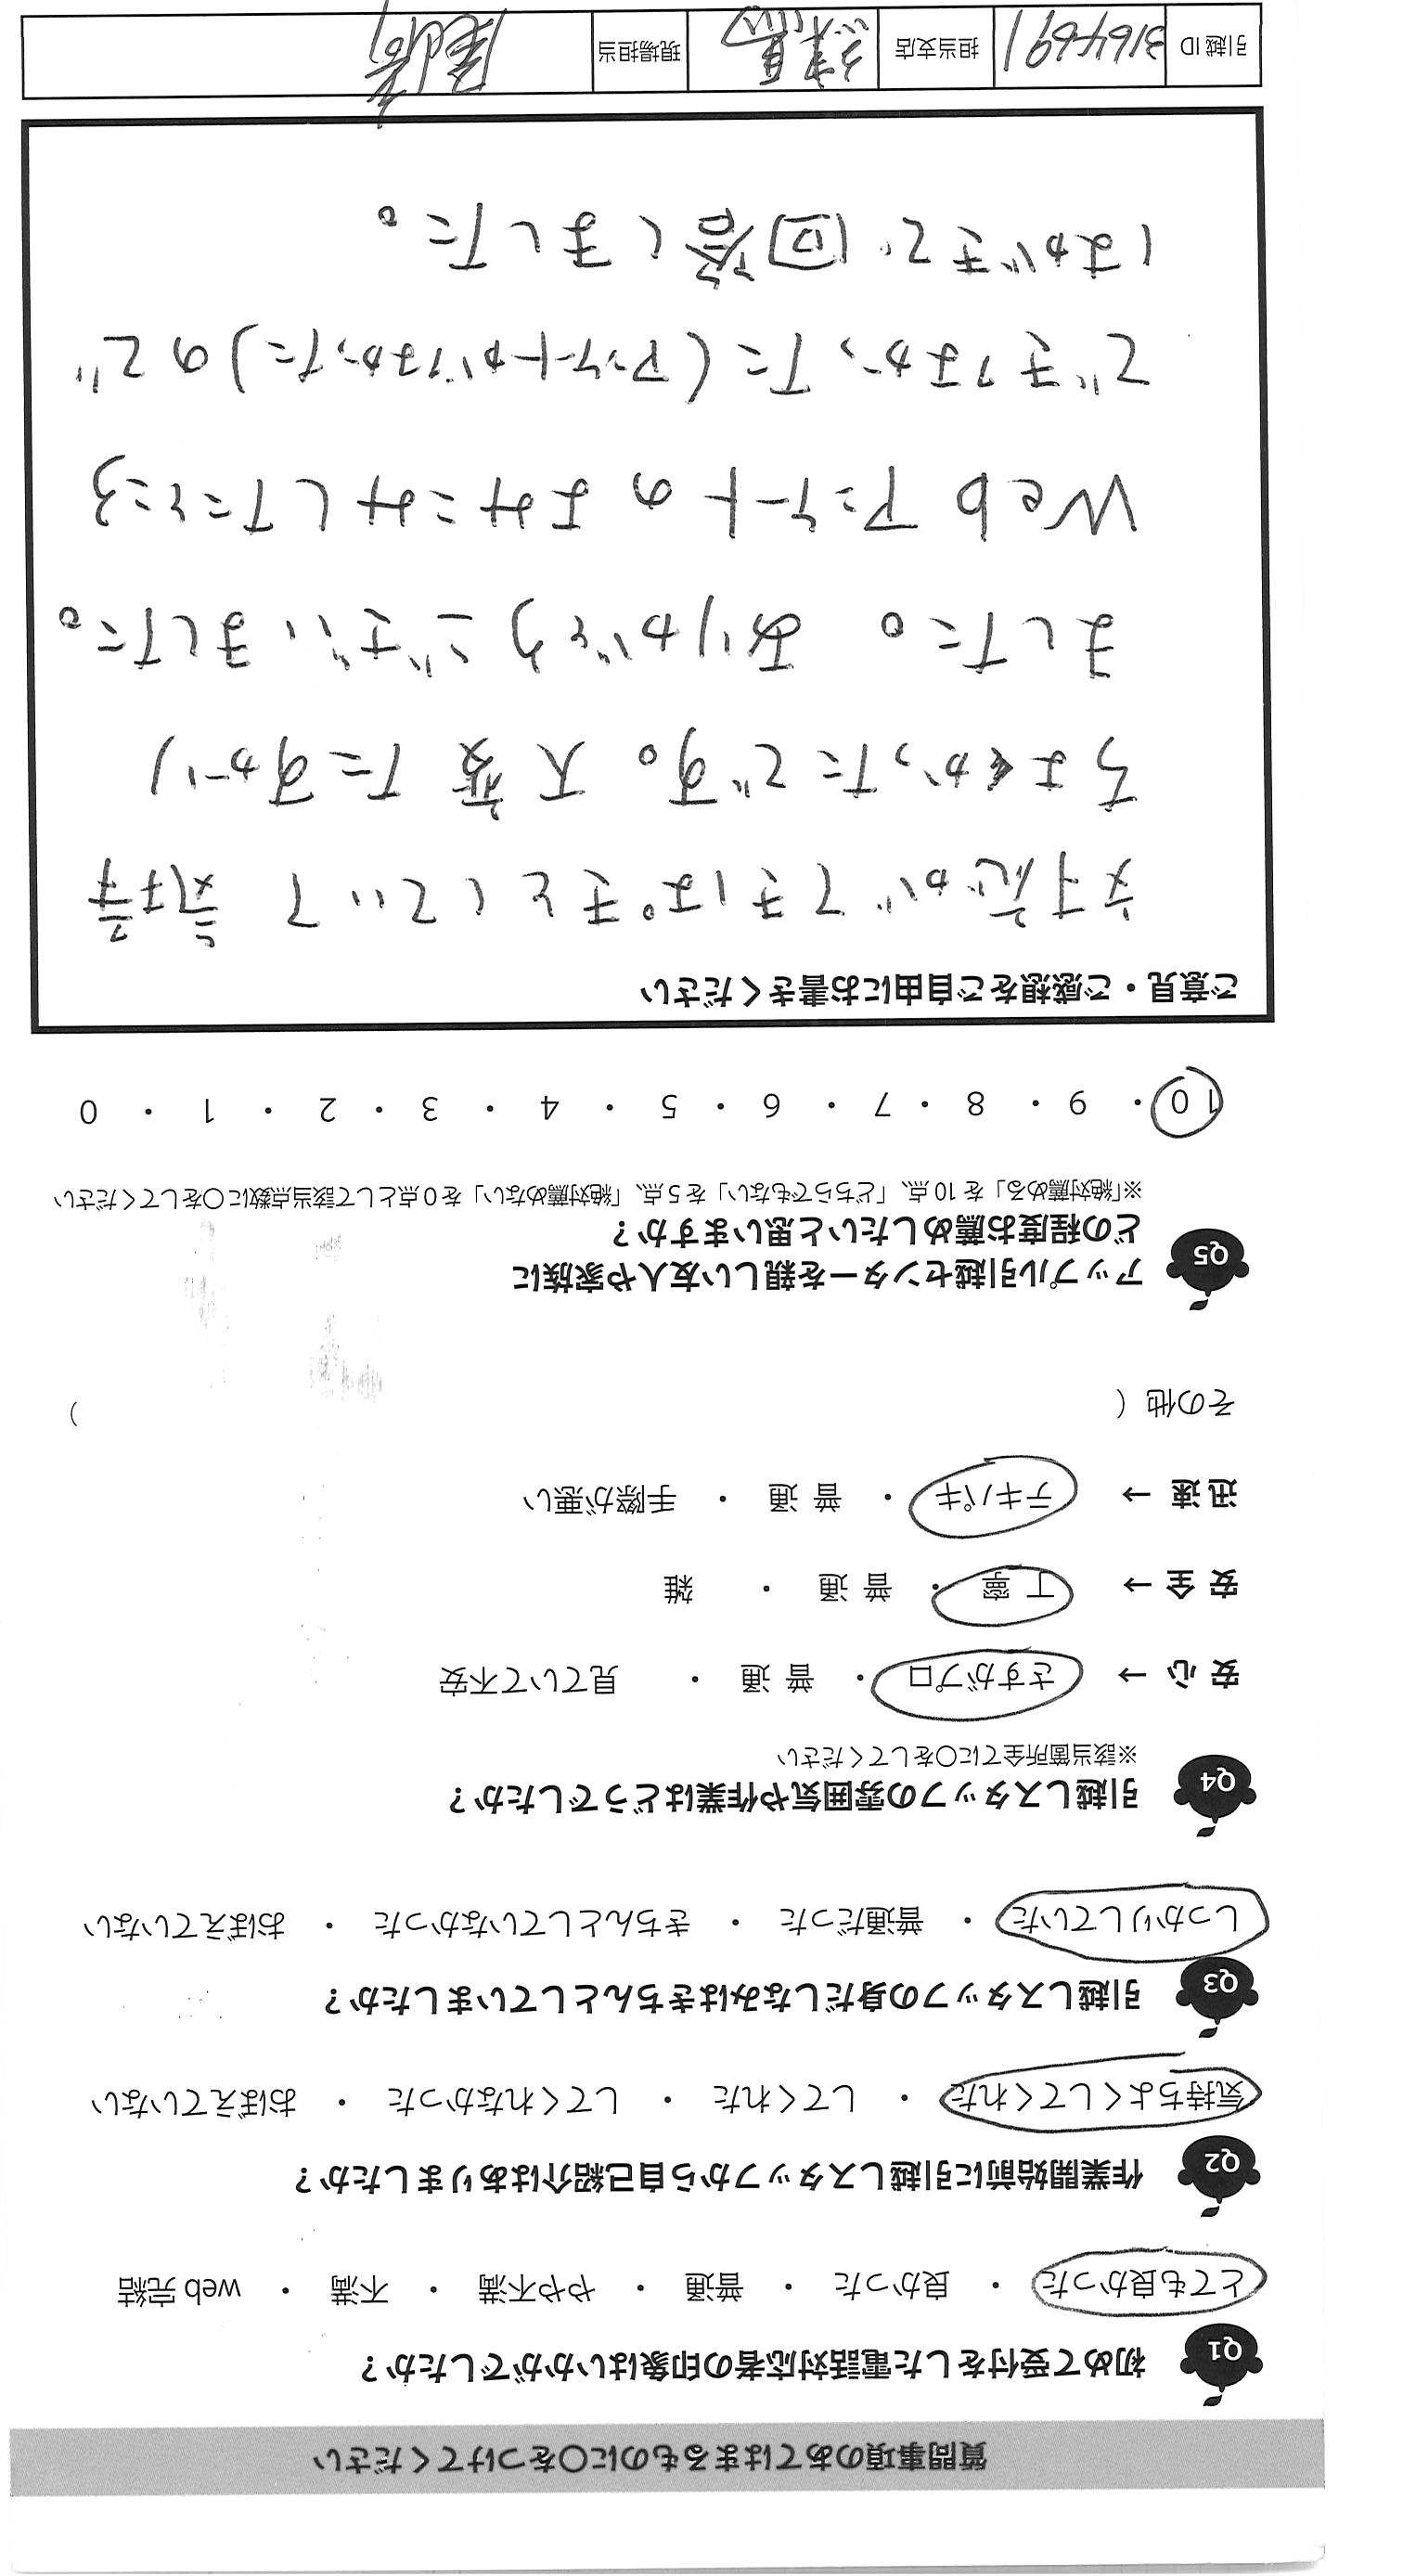 質問事項のあてはまるものに〇をつけてください
Q1 初めて受付をした電話対応者の印象はいかがでしたか？
とても良かった ・ 良かった ・ 普通 ・ やや不満 ・ 不満 ・ web 完結
Q2 作業開始前に引越しスタッフから自己紹介はありましたか？
気持ちよくしてくれた ・ してくれた ・ してくれなかった ・ おぼえていない
Q3 引越しスタッフの身だしなみはきちんとしていましたか？
しっかりしていた ・ 普通だった ・ きちんとしていなかった ・ おぼえていない
Q4 引越しスタッフの雰囲気や作業はどうでしたか？
※該当箇所全てに〇をしてください
安心 → さすがプロ ・ 普通 ・ 見ていて不安
安全 → 丁寧 ・ 普通 ・ 雑
迅速 → テキパキ ・ 普通 ・ 手際が悪い
その他（ ）
Q5 アップル引越センターを親しい友人や家族に
どの程度お薦めしたいと思いますか？
※「絶対薦める」を10点、「どちらでもない」を5点、「絶対薦めない」を0点として該当点数に〇をしてください
10 ・ 9 ・ 8 ・ 7 ・ 6 ・ 5 ・ 4 ・ 3 ・ 2 ・ 1 ・ 0
ご意見・ご感想をご自由にお書きください
対応がてきぱきとしていて 気持
ちよくかったです。大変 たすかり
ました。 ありがとうございました。
Web アンケートの よみこみしたところ
できなかった(アンケートがなかった)ので
はがきで回答しました。
引越ID 3164691 担当支店 現場担当 尾崎